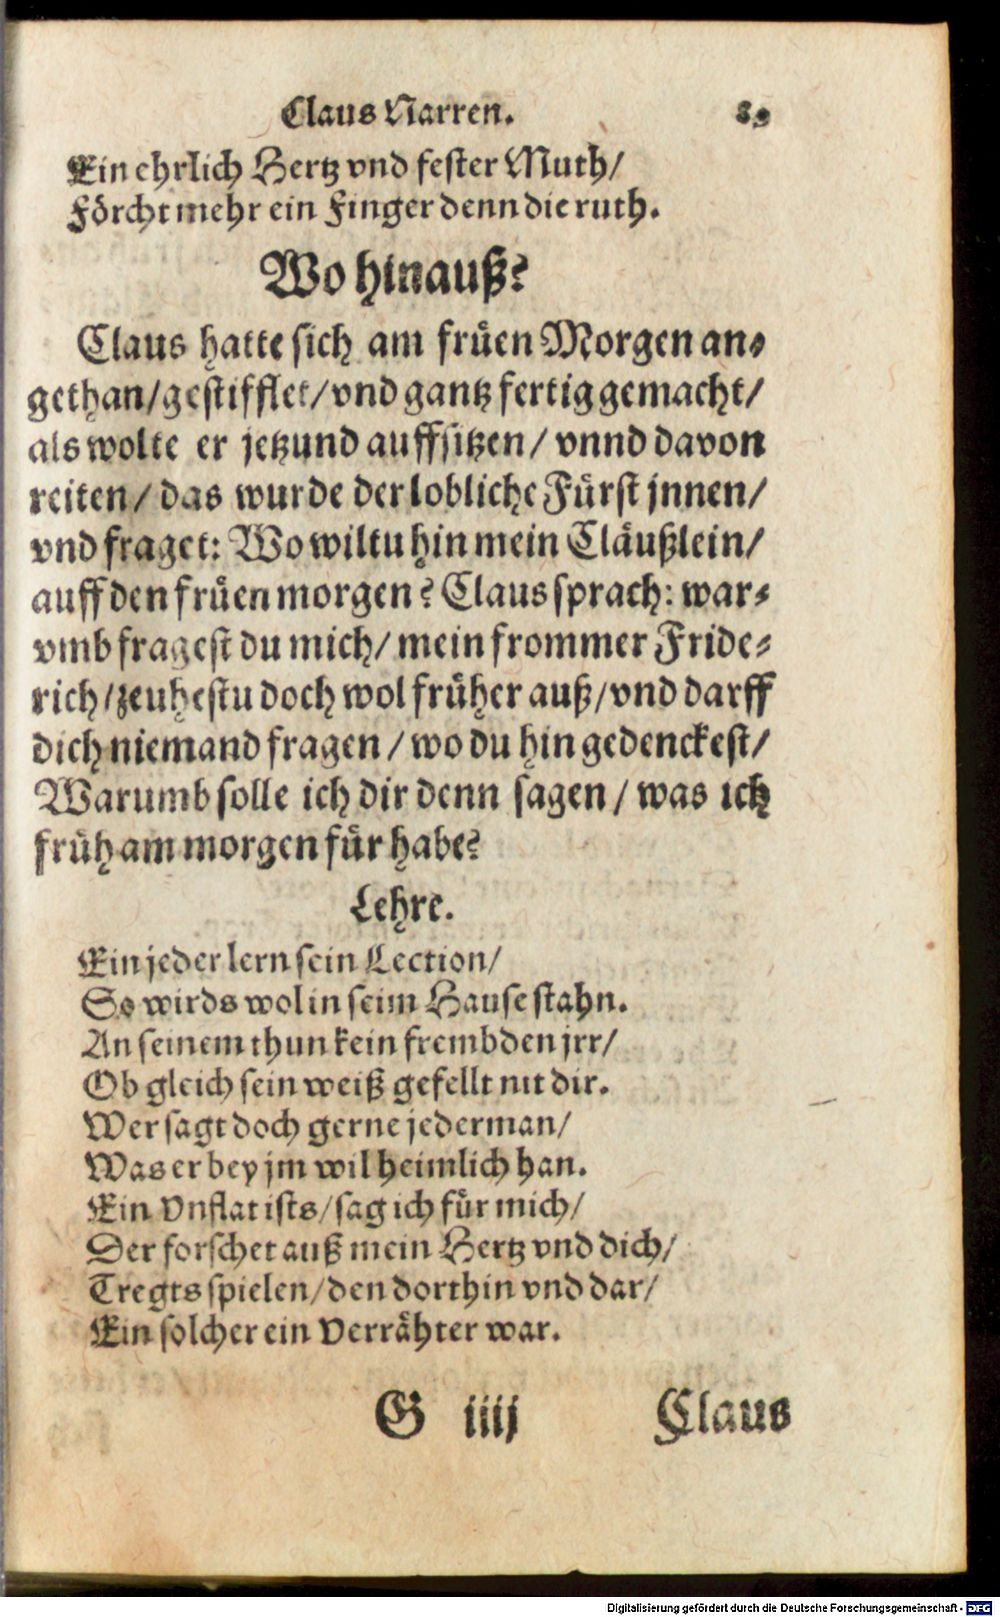 Claus Narren.
Ein ehrlich Hertz vnd fester Muth/
Förcht mehr ein Finger denn die ruth.
Wo hinauß?
Claus hatte sich am früen Morgen an-
gethan/gestifflet/vnd gantz fertig gemacht/
als wolte er jetzund auffsitzen/ vnnd davon
reiten/ das wurde der lobliche Fürst jnnen/
vnd fraget: Wo wiltu hin mein Cläußlein/
auff den früen morgen? Claus sprach: war-
vmb fragest du mich/ mein frommer Fride-
rich/zeuhestu doch wol früher auß/vnd darff
dich niemand fragen/ wo du hin gedenckest/
Warumb solle ich dir denn sagen/ was ich
früh am morgen für habe?
Lehre.
Ein jeder lern sein Lection/
So wirds wol in seim Hause stahn.
An seinem thun kein frembden jrr/
Ob gleich sein weiß gefellt nit dir.
Wer sagt doch gerne jederman/
Was er bey jm wil heimlich han.
Ein Vnflat ists/sag ich für mich/
Der forschet auß mein Hertz vnd dich/
Tregts spielen/den dorthin vnd dar/
Ein solcher ein Verrähter war.
G iiij Claus
Digitalisierung gefördert durch die Deutsche Forschungsgemeinschaft - DFG